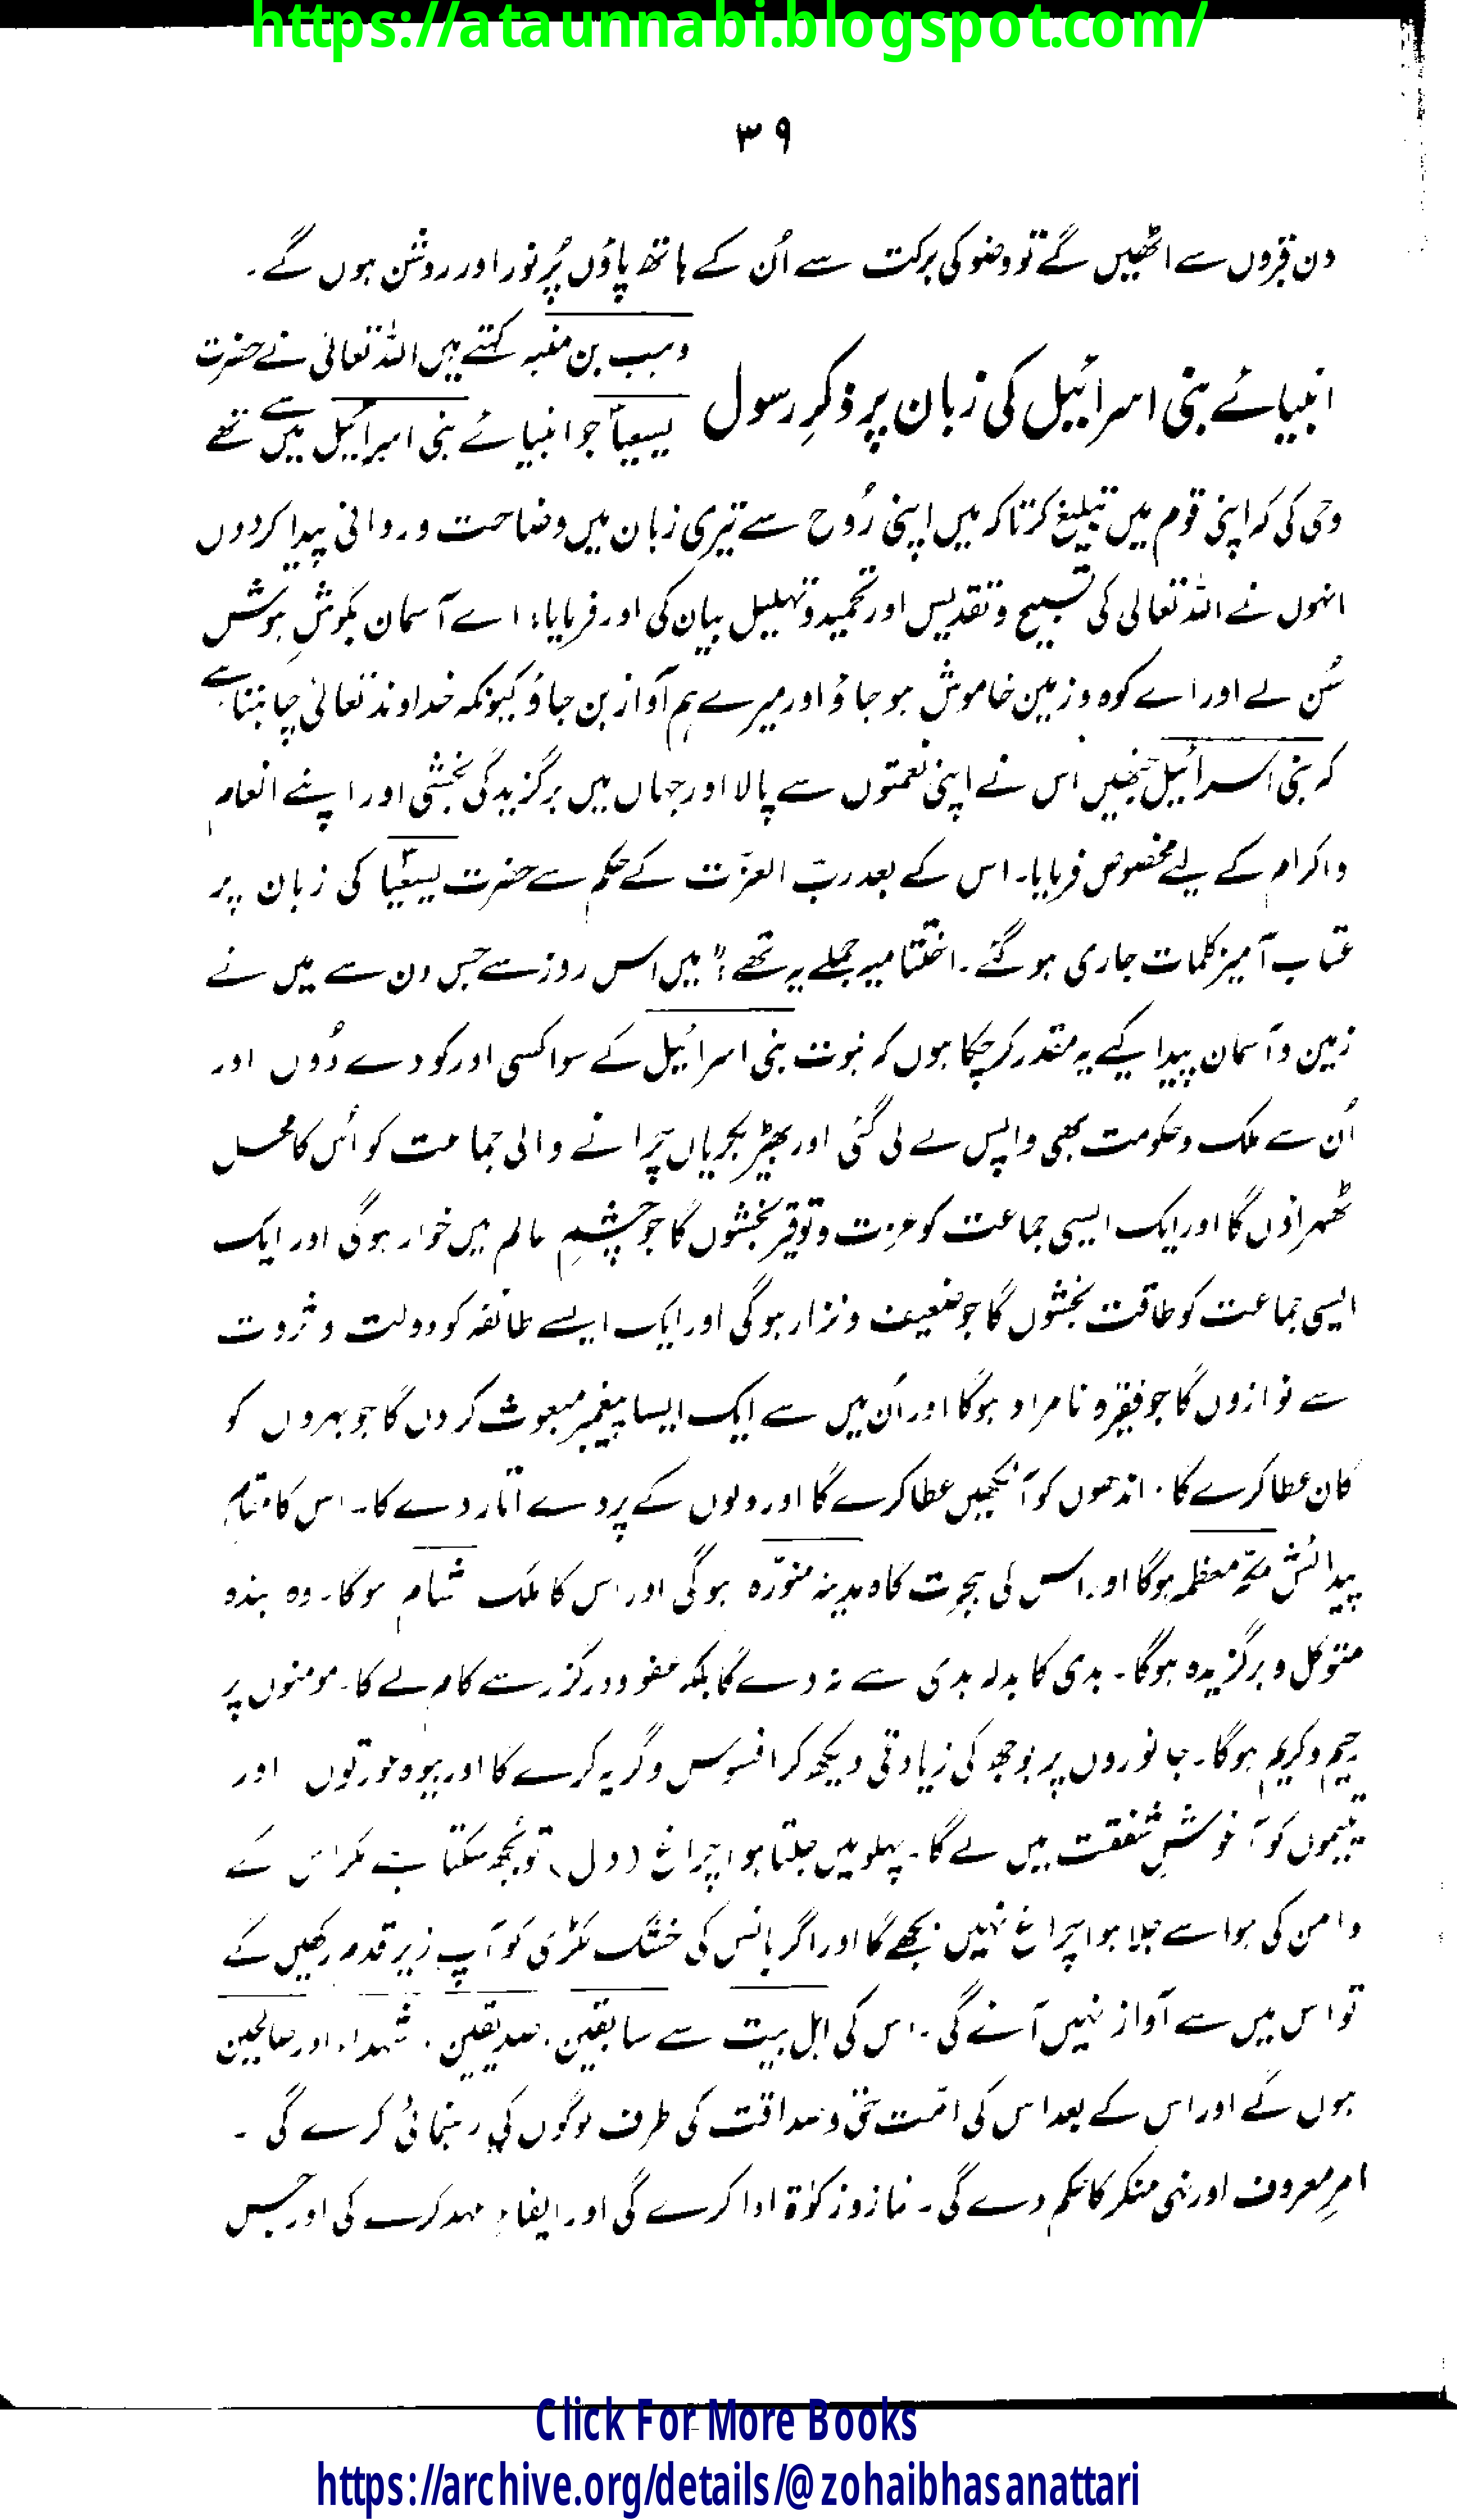 https://ataunnabi.blogspot.com/
۳۹
دن قبروں سے اٹھیں گے تو وضو کی برکت سے اُن کے ہاتھ پاؤں پُر نور اور روشن ہوں گے۔
انبیائے بنی اسرائیل کی زبان پر ذکرِ رسول
وہب بن منبہ کہتے ہیں اللہ تعالیٰ نے حضرت
یسعیاؑ جو انبیائے بنی اسرائیل میں سے تھے
وحی کی کہ اپنی قوم میں تبلیغ کر تاکہ میں اپنی رُوح سے تیری زبان میں وضاحت و روانی پیدا کردوں
انہوں نے اللہ تعالیٰ کی تسبیح و تقدیس اور تحمید و تہلیل بیان کی اور فرمایا: اے آسمان بگوشِ ہوش
سُن لے اور اے کوہ و زمین خاموش ہو جاؤ اور میرے ہم آواز بن جاؤ کیونکہ خداوند تعالیٰ چاہتا ہے
کہ بنی اسرائیل جنھیں اس نے اپنی نعمتوں سے پالا اور جہاں میں برگزیدگی بخشی اور اپنے انعام
و اکرام کے لیے مخصوص فرمایا۔ اس کے بعد ربّ العزّت کے حکم سے حضرت یسعیاؑ کی زبان پر
عتاب آمیز کلمات جاری ہو گئے۔ اختتامیہ جملے یہ تھے: "میں اس روز سے جس دن سے میں نے
زمین و آسمان پیدا کیے یہ مقدر کر چکا ہوں کہ نبوت بنی اسرائیل کے سوا کسی اور کو دے دُوں اور
اُن سے ملک و حکومت بھی واپس لے لی گئی اور بھیڑ بکریاں چَرانے والی جماعت کو اُس کا محل
ٹھہراؤں گا اور ایک ایسی جماعت کو عزت و توقیر بخشوں گا جو چشمِ عالم میں خوار ہوگی اور ایک
ایسی جماعت کو طاقت بخشوں گا جو ضعیف و نزار ہوگی اور ایک ایسے طائفہ کو دولت و ثروت
سے نوازوں گا جو فقیر و نامراد ہوگا اور اُن میں سے ایک ایسا پیغمبر مبعوث کردوں گا جو بہروں کو
کان عطا کرے گا۔ اندھوں کو آنکھیں عطا کرے گا اور دلوں کے پردے اتار دے گا۔ اس کا مقام
پیدائش مکّہ معظمہ ہوگا اور اس کی ہجرت گاہ مدینہ منوّرہ ہوگی اور اس کا ملک شام ہوگا۔ وہ بندہ
متوکل و برگزیدہ ہوگا۔ بدی کا بدلہ بدی سے نہ دے گا بلکہ عفو و درگزر سے کام لے گا۔ مومنوں پر
رحیم و کریم ہوگا۔ جانوروں پر بوجھ کی زیادتی دیکھ کر افسوس و گریہ کرے گا اور بیوہ عورتوں اور
یتیموں کو آغوشِ شفقت میں لے گا۔ پہلو میں جلتا ہوا چراغ (دل) تو بجھ سکتا ہے مگر اس کے
دامن کی ہوا سے جلا ہوا چراغ نہیں بجھے گا اور اگر بانس کی خشک لکڑی کو آپ زیرِ قدم رکھیں گے
تو اس میں سے آواز نہیں آئے گی۔ اس کی اہل بیت سے سابقین، صدیقین، شہداء اور صالحین
ہوں گے اور اس کے بعد اس کی امّت حق و صداقت کی طرف لوگوں کی رہنمائی کرے گی۔
امرِ معروف اور نہی منکر کا حکم دے گی۔ نماز و زکوٰۃ ادا کرے گی اور ایفاءِ عہد کرے گی اور جس
Click For More Books
https://archive.org/details/@zohaibhasanattari